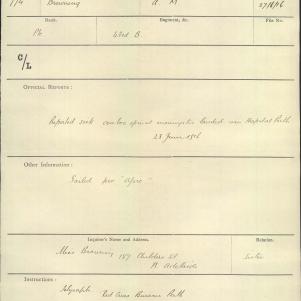 Browning A. M
Rank. Regiment, &c. File No.
Pte 43rd B.
C/L
OFFICIAL REPORTS:
Reported sick cerebro spinal meningitis landed Hospital Perth
23 June 1916
Other Information:
Sailed per "Afric"
Inquirer's Name and Address. Relation.
Miss Browning 157 Childers St Sister
N. Adelaide
Instructions:
Red Cross Bureau Perth